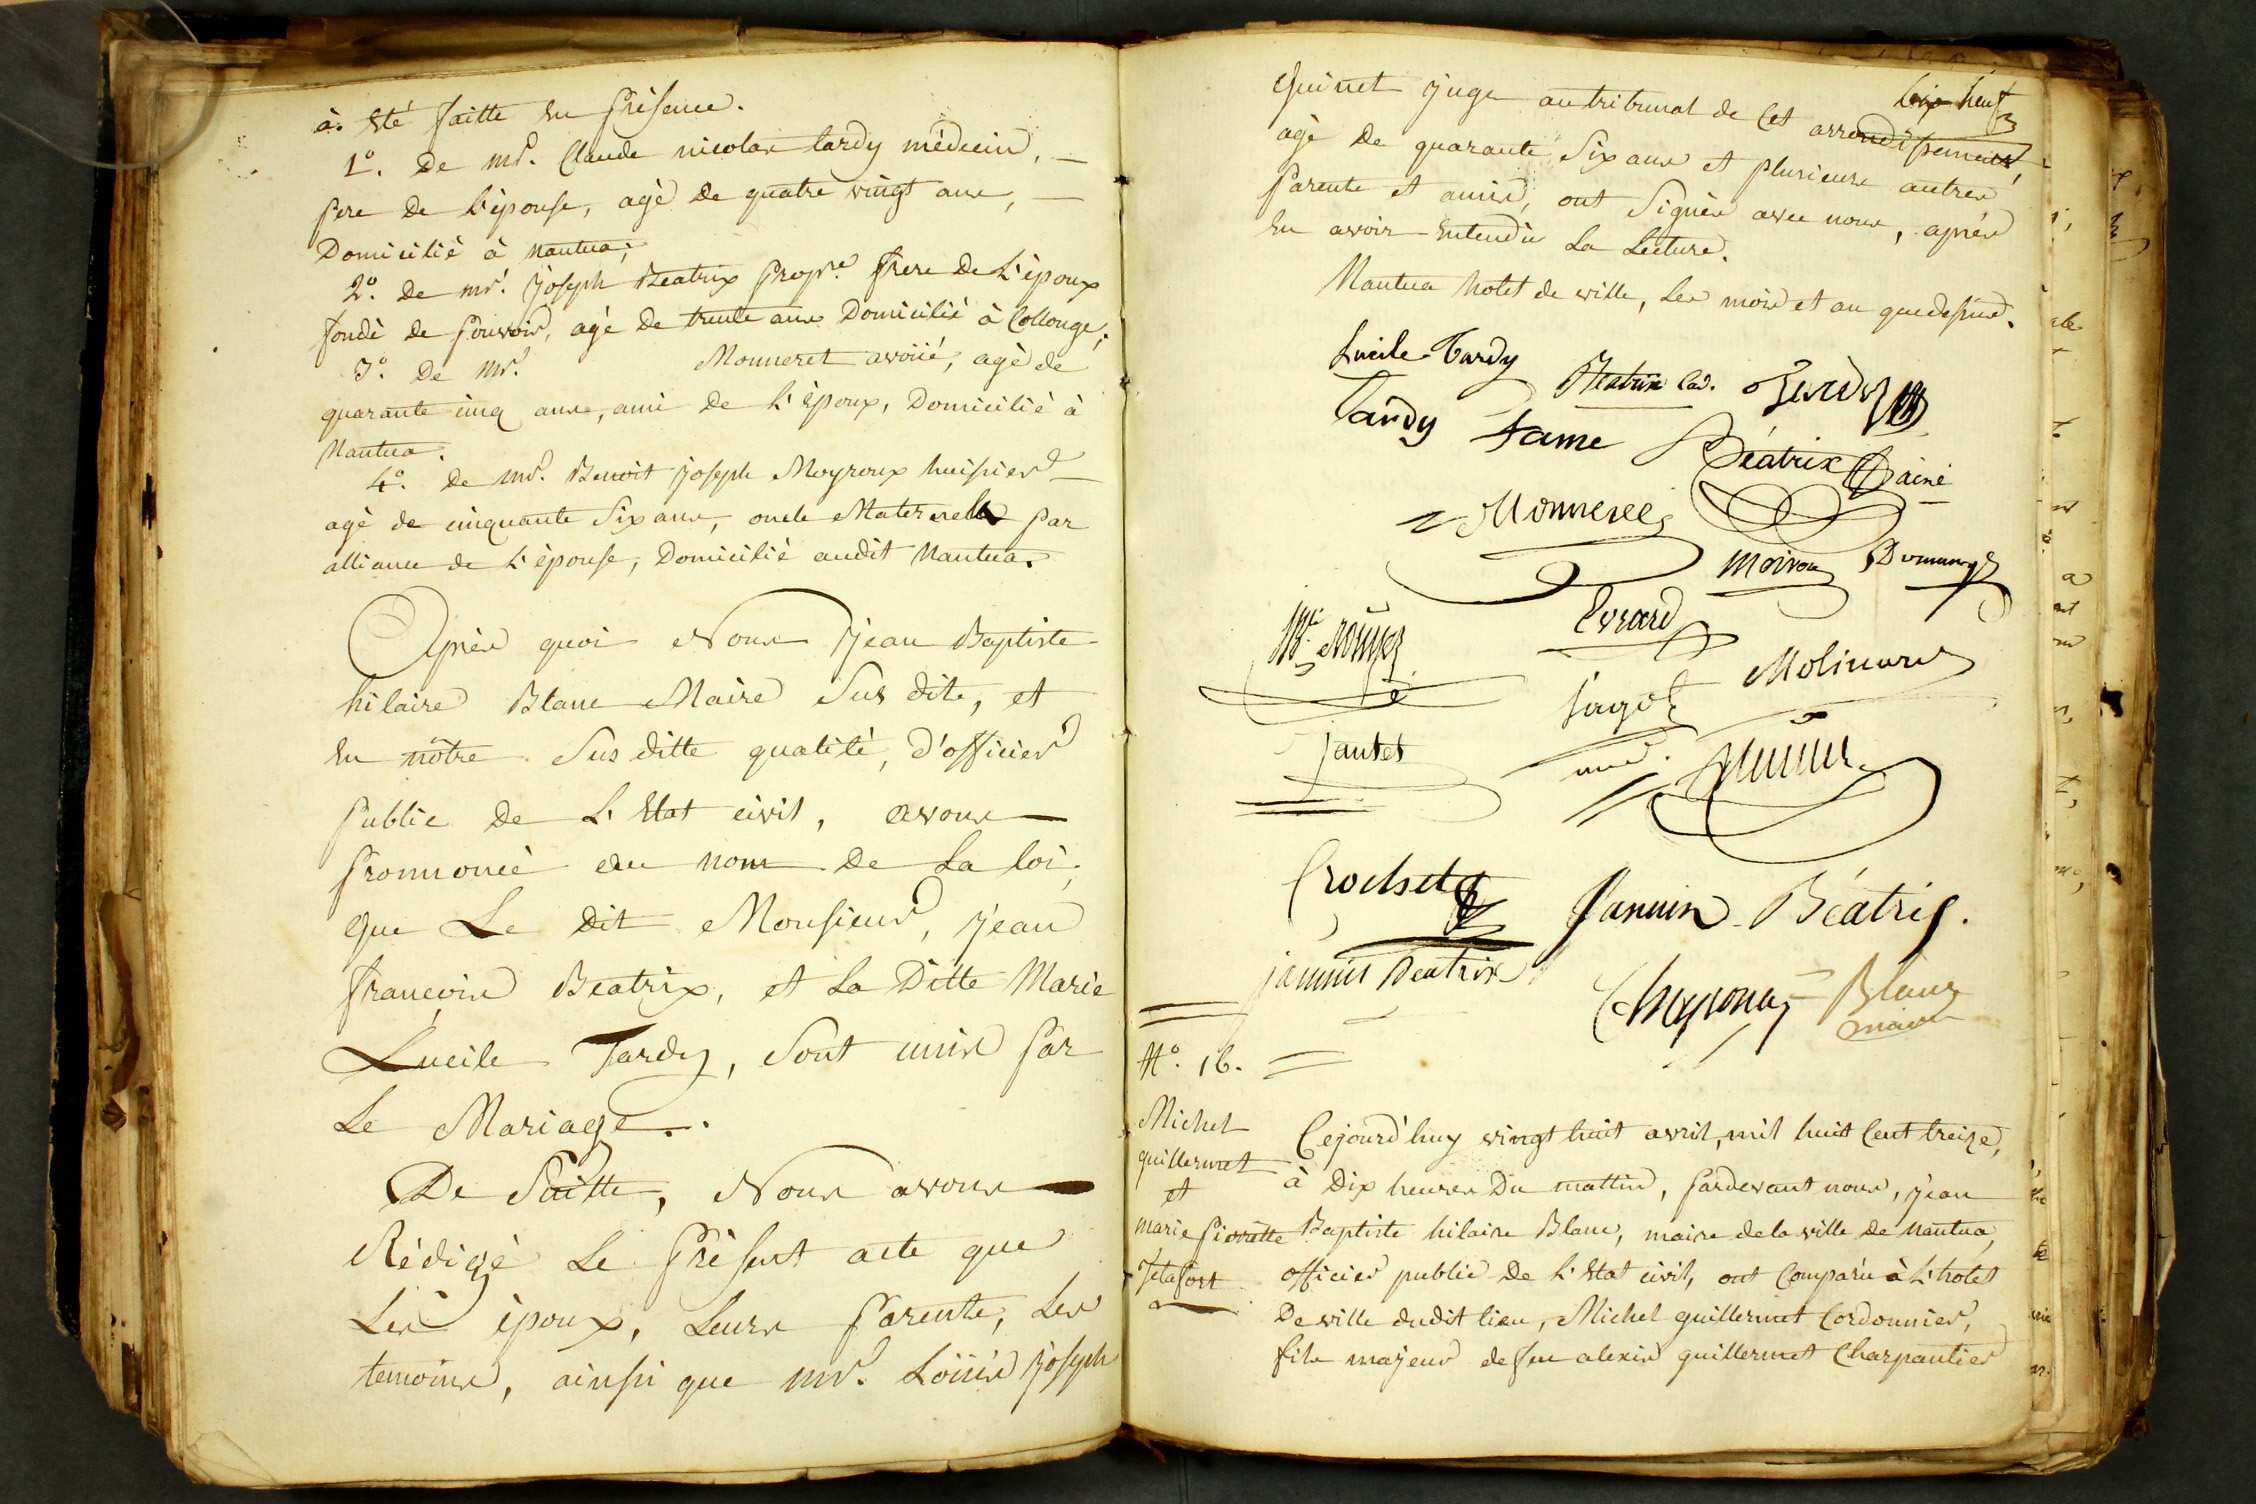 à. été faitte en présence.
1º. De mr. Claude nicolas tardy médecin,
pere de l'épouse, agé de quatre vingt ans,
Domicilié à nantua;
2º. de mr. joseph Beatrix propre. frere de L'époux
fondé de pouvoir, agé de trente ans Domicilié à Collonge;
3º. De mr. Monneret avoüé, agé de
quarante cinq ans, ami de L'époux, Domicilié à
Nantua.
4º. de mr. Benoit joseph Moyroux huissier
agé de cinquante Six ans, oncle Maternel par
alliance de L'épouse, Domicilié audit Nantua.
Après quoi Nous jean Baptiste
hilaire Blanc Maire Sus dit, et
en nôtre Sus ditte qualité, d'officier
public de L'Etat civil, avons
prononcé au nom de La loi,
que Le dit Monsieur, jean
françois Beatrix, et La Ditte Marie
Lucile Tardy, Sont unis par
Le Mariage..
De Suitte, Nous avons
Rédigé Le présent acte que
Les époux, Leurs parents, Les
temoins, ainsi que mr. Loüis joseph
neuf
Quinet juge au tribunal de Cet arrondissement,
agé De quarante Six ans et plusieurs autres
parents et amis, ont Signés avec nous, après
en avoir entendu La Lecture.
Nantua hotel de ville, Les mois et an que dessus.
Lucile Tardy
Béatrix cad.
Tardy
Tardy
fame
Béatrix
ainé
Monneret
Moiron
Evrard
Molinard
jagot
jantet
Crochet
Jannin Béatrix.
jannin Beatrix
Blanc
maire
Nº. 16.
Michel
guillermet
et
marie pierrette
Cejourd'huy vingt huit avril, mil huit Cent treize,
à Dix heures Du mattin, pardevant nous, jean
Baptiste hilaire Blanc, maire de la ville de nantua,
officier public De L'Etat civil, ont Comparu à L'hotel
De ville dudit lieu, Michel guillermet Cordonnier,
fils majeur de feu alexis guillermet Charpantier